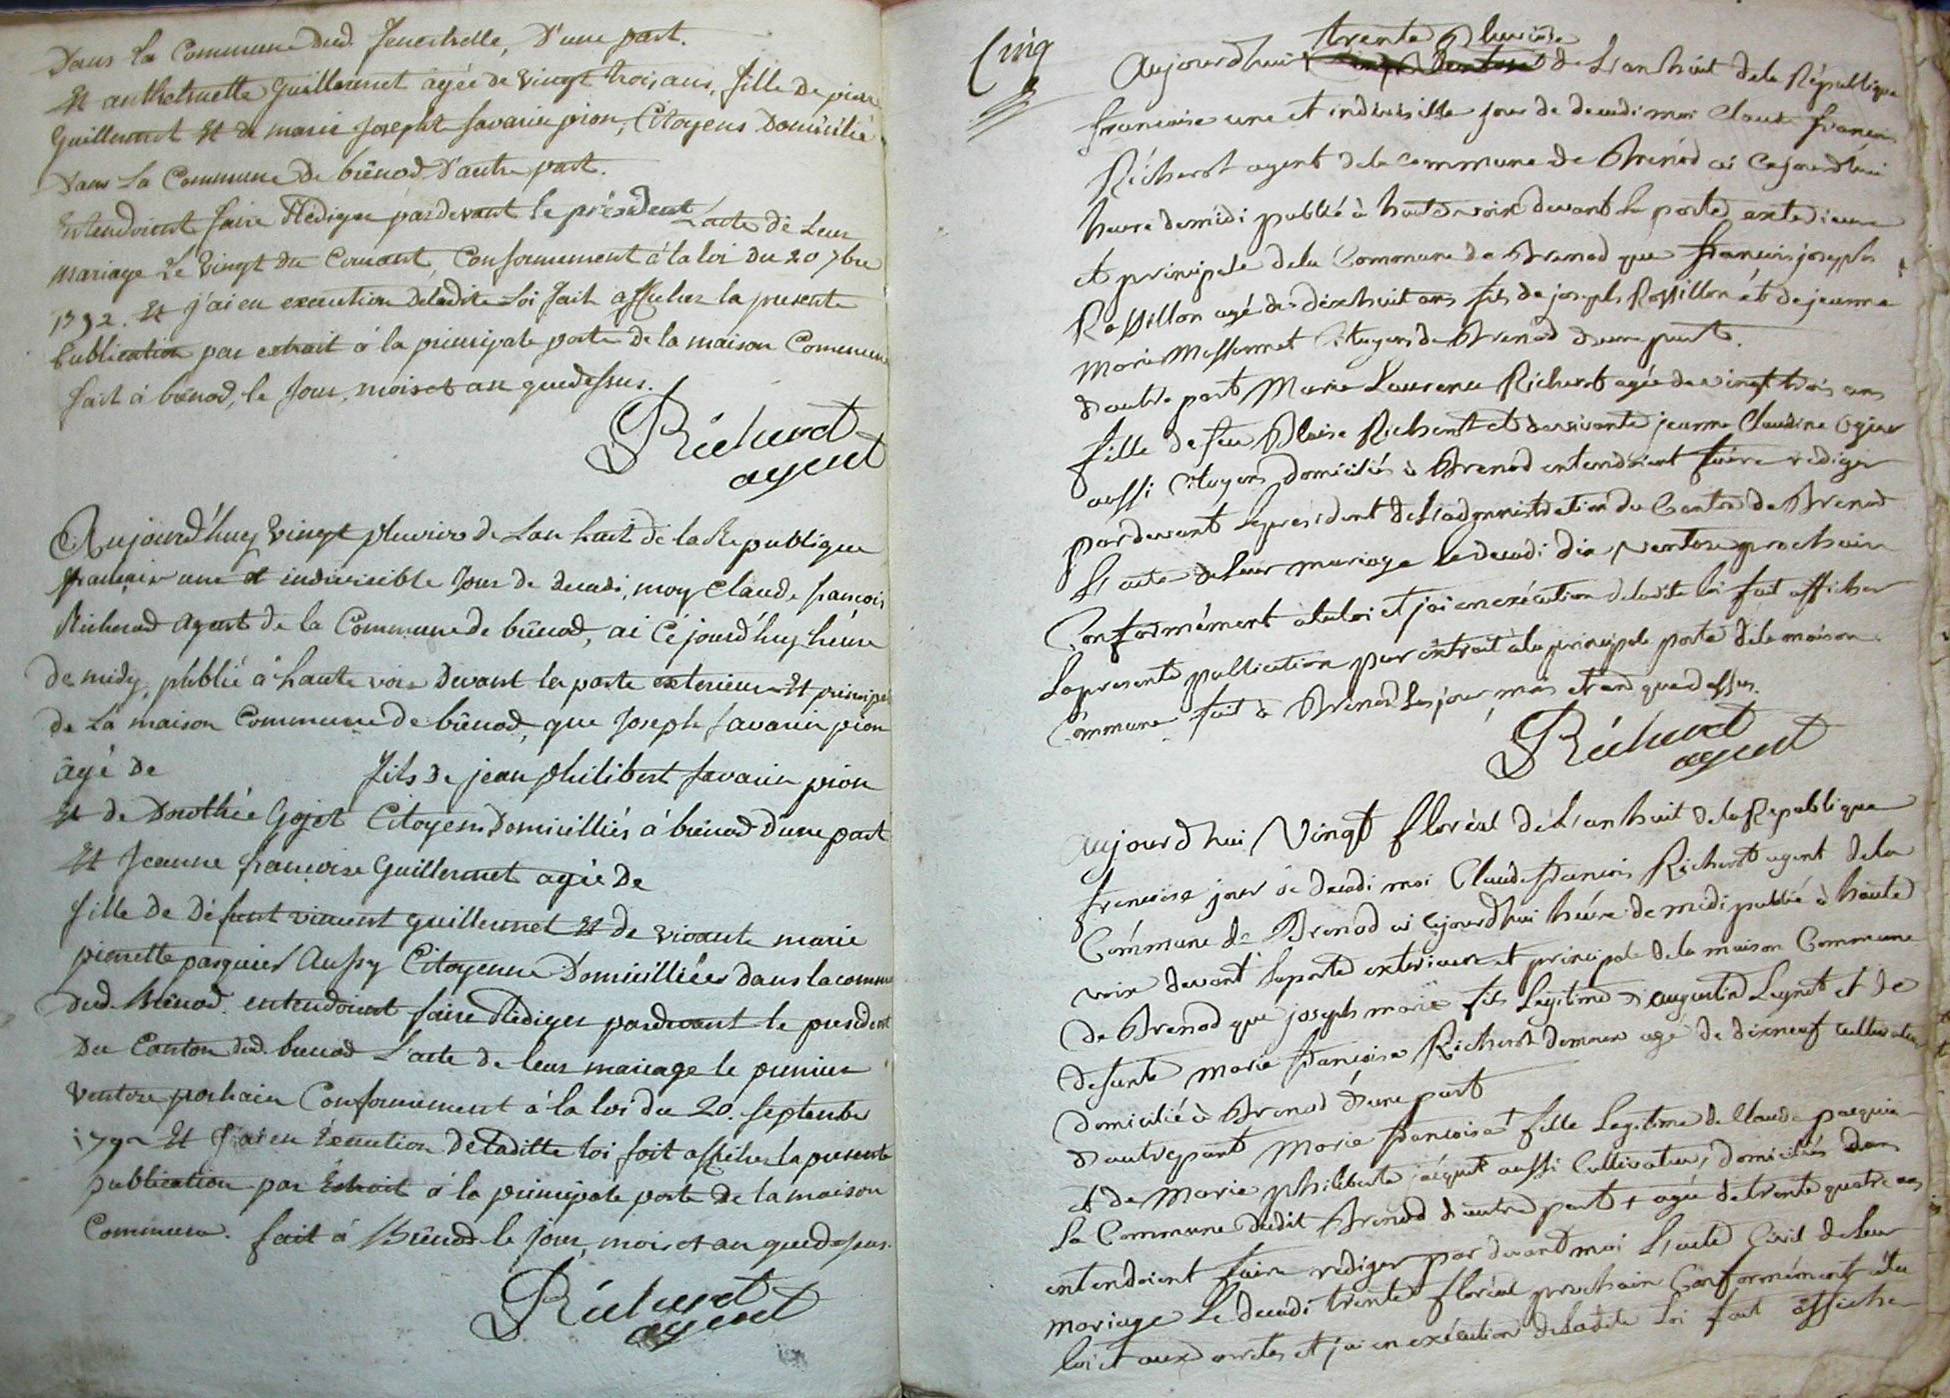 Dans la Commune dud. fenestrelle, D'une part.
Et anthelmette Guillermet agée de vingt trois ans, fille De pierre
Guillermet Et de marie Josepht Savarin pion, Citoyens Domicilié
Dans la Commune de brênod D'autre part.
Entendoient faire Rédiger pardevant le président L'acte de Leur
mariage Le vingt du Courant, Conformement á la loi du 20 7bre
1792. Et j'ai en execution deladite Loi fait afficher la presente
Publication par extrait á la principale porte de la maison Commune
fait á brênod, le Jour, mois et an que dessus.
Richerot
agent
Aujourd'huy vingt pluviose de Lan huit de la Republique
française une et indivisible Jour de decadi, moy Claude françois
Richerod Agent de la Commune de brênod, ai Céjourd'huy heure
de midy, publié á haute voix Devant la porte exterieure Et principale
de La maison Commune de brênod, que Joseph Savarin pion
âgé de fils de jean philibert Savarin pion
Et de Dorothée Gojot Citoyens Domicilliés á brênod D'une part
Et Jeanne françoise Guillermet agée De
fille De Défunt vincent guillermet Et de vivante marie
pierrette pasquier Aussy Citoyenne Domicilliées dans la comm
dud. Brênod. entendoient faire Rédiger pardevant le president
Du Canton dud. brenod L'acte de leur mariage le premier
Ventose prochain Conformement á la loi du 20. Septembre
1792 Et J'ai en Execution De laditte loi fait afficher la presente
publication par Extrait á la principale porte De la maison
Commune. fait á Brênod le Jour, mois et an que dessus.
Richerot
agent
Cinq
trente Pluviose
Aujourdhui de L'an huit dela République
francaise une et indivisible jour de decadi moi Claude francois
Richerot agent dela commune de Brenod ai cejourdhui
heure demidi publié à haute voix devant la porte exterieure
et principale dela Commune de Brenod que francois joseph
Rossillon agé de dixhuit ans fils de joseph Rossillon et de jeanne
Marie Massonnet Citoyens de Brenod d'une part.
D'autre part Marie Laurence Richerot agée de vingt trois ans
fille de feu Blaise Richerot et de vivante jeanne Claudine Ogier
aussi Citoyens domiciliés à Brenod entendoient faire rediger
pardevant le president de L'administration du Canton de Brenod
L'acte de leur mariage le decadi dix ventose prochain
Conformément à la loi et j'ai en exécution deladite loi fait afficher
la presente publication par extrait à la principale porte dela maison
Commune fait à Brenod les jour, mois et an que dessus.
Richerot
agent
Aujourdhui Vingt floréal de L'an huit dela Republique
francaise jour de decadi moi Claude francois Richerot agent dela
Commune de Brenod ai cejourdhui heure de midi publié à haute
voix devant la porte exterieure et principale de la maison Commune
de Brenod que joseph marie fils legitime d'augustin Leynet et de
defunte Marie francoise Richerot demeure agé de dixneuf cultivateur
Domicilié à Brenod d'une part
D'autre part Marie francoise fille Legitime de Claude pasquier
et de Marie philiberte jacquet aussi Cultivateurs, domiciliés dans
la Commune dudit Brenod d'autre part + agée de trente quatre ans
entendoient faire rédiger par devant moi L'acte Civil de leur
mariage le decadi trente floréal prochain Conformément à la
loi et aux arretés et j'ai en exécution deladite Loi fait affiche